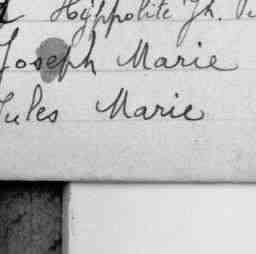 Hyppolite Jh.
Joseph Marie
Jules Marie